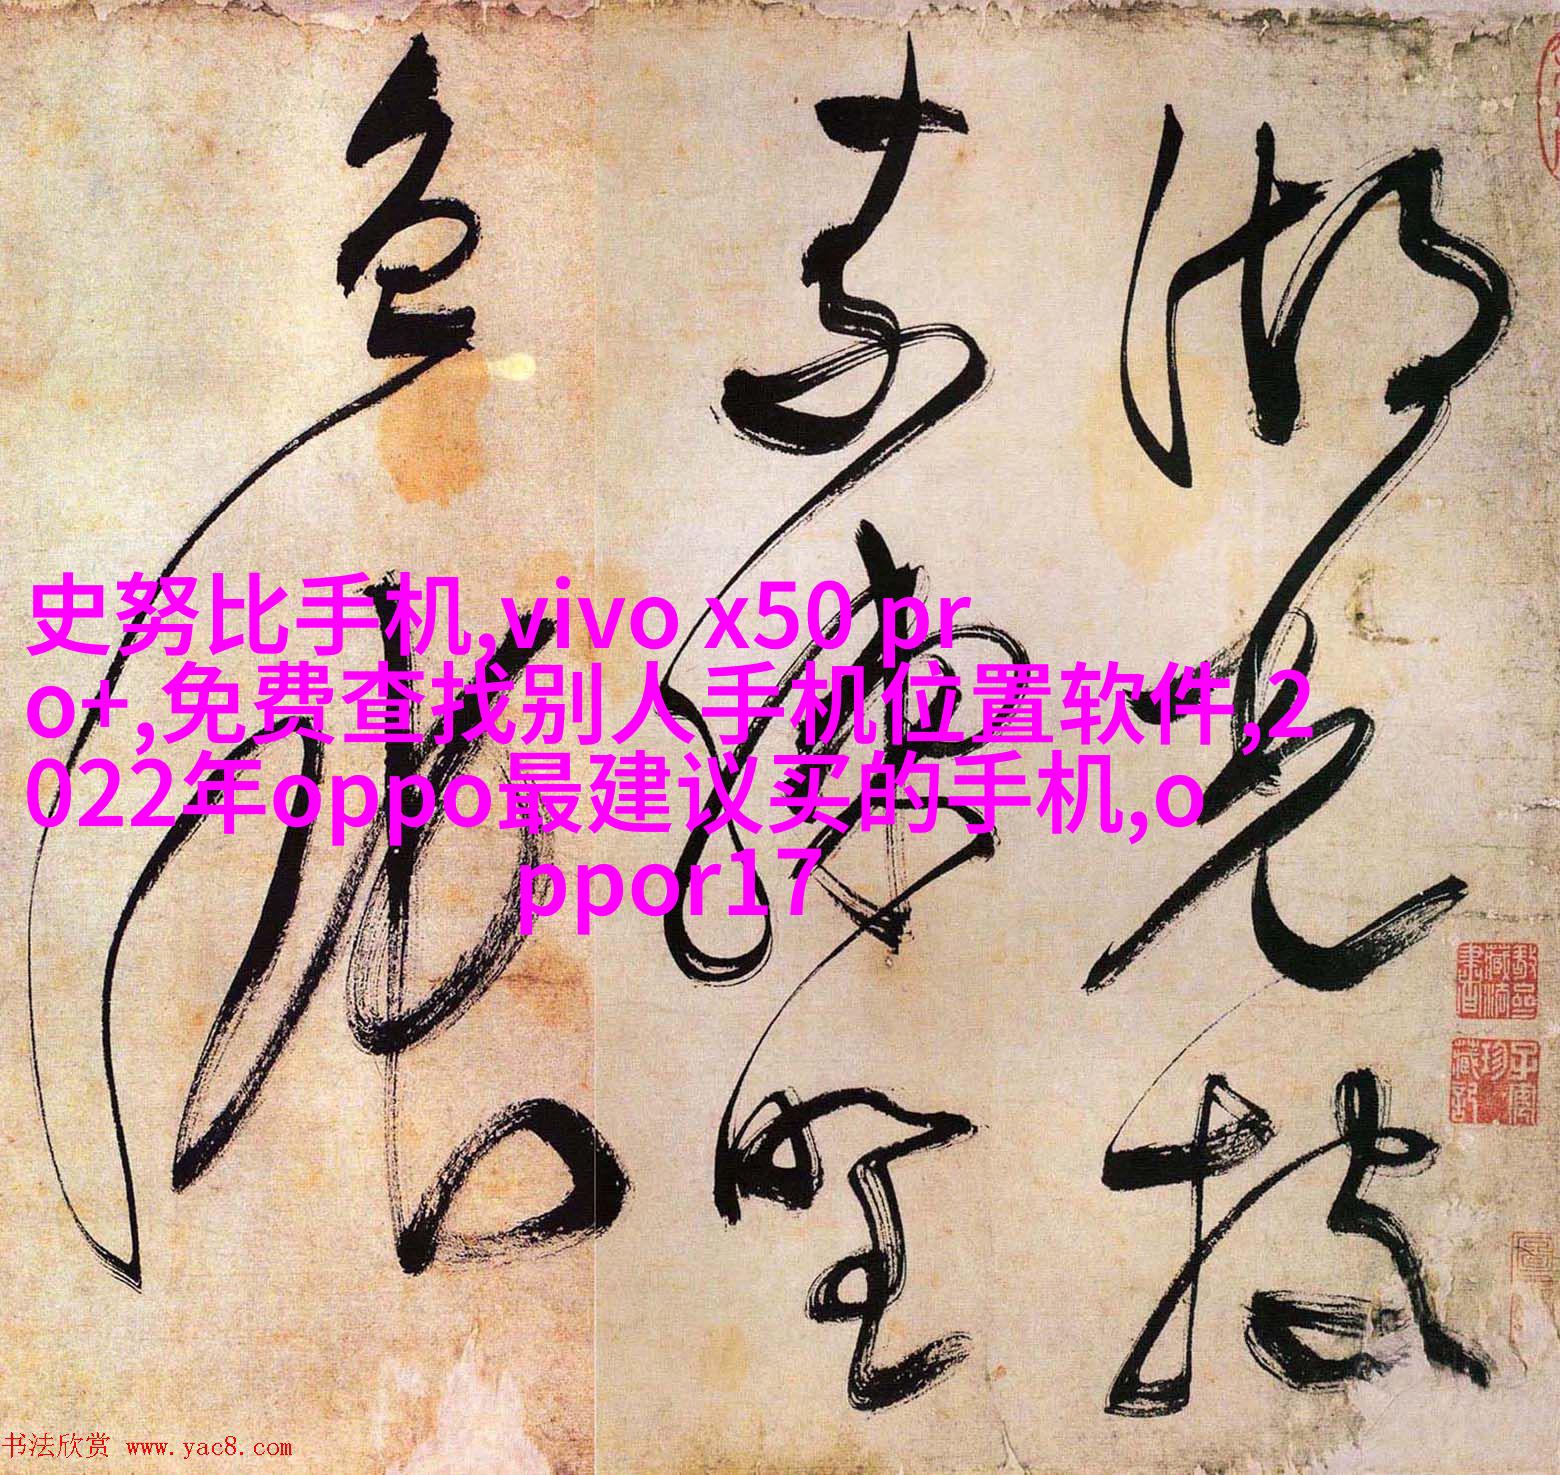 湖光披
素練野
色
史努比手机,vivo x50 pr
o+,免费查找别人手机位置软件,2
022年oppo最建议买的手机,o
ppor17
书法欣赏 www.yac8.com